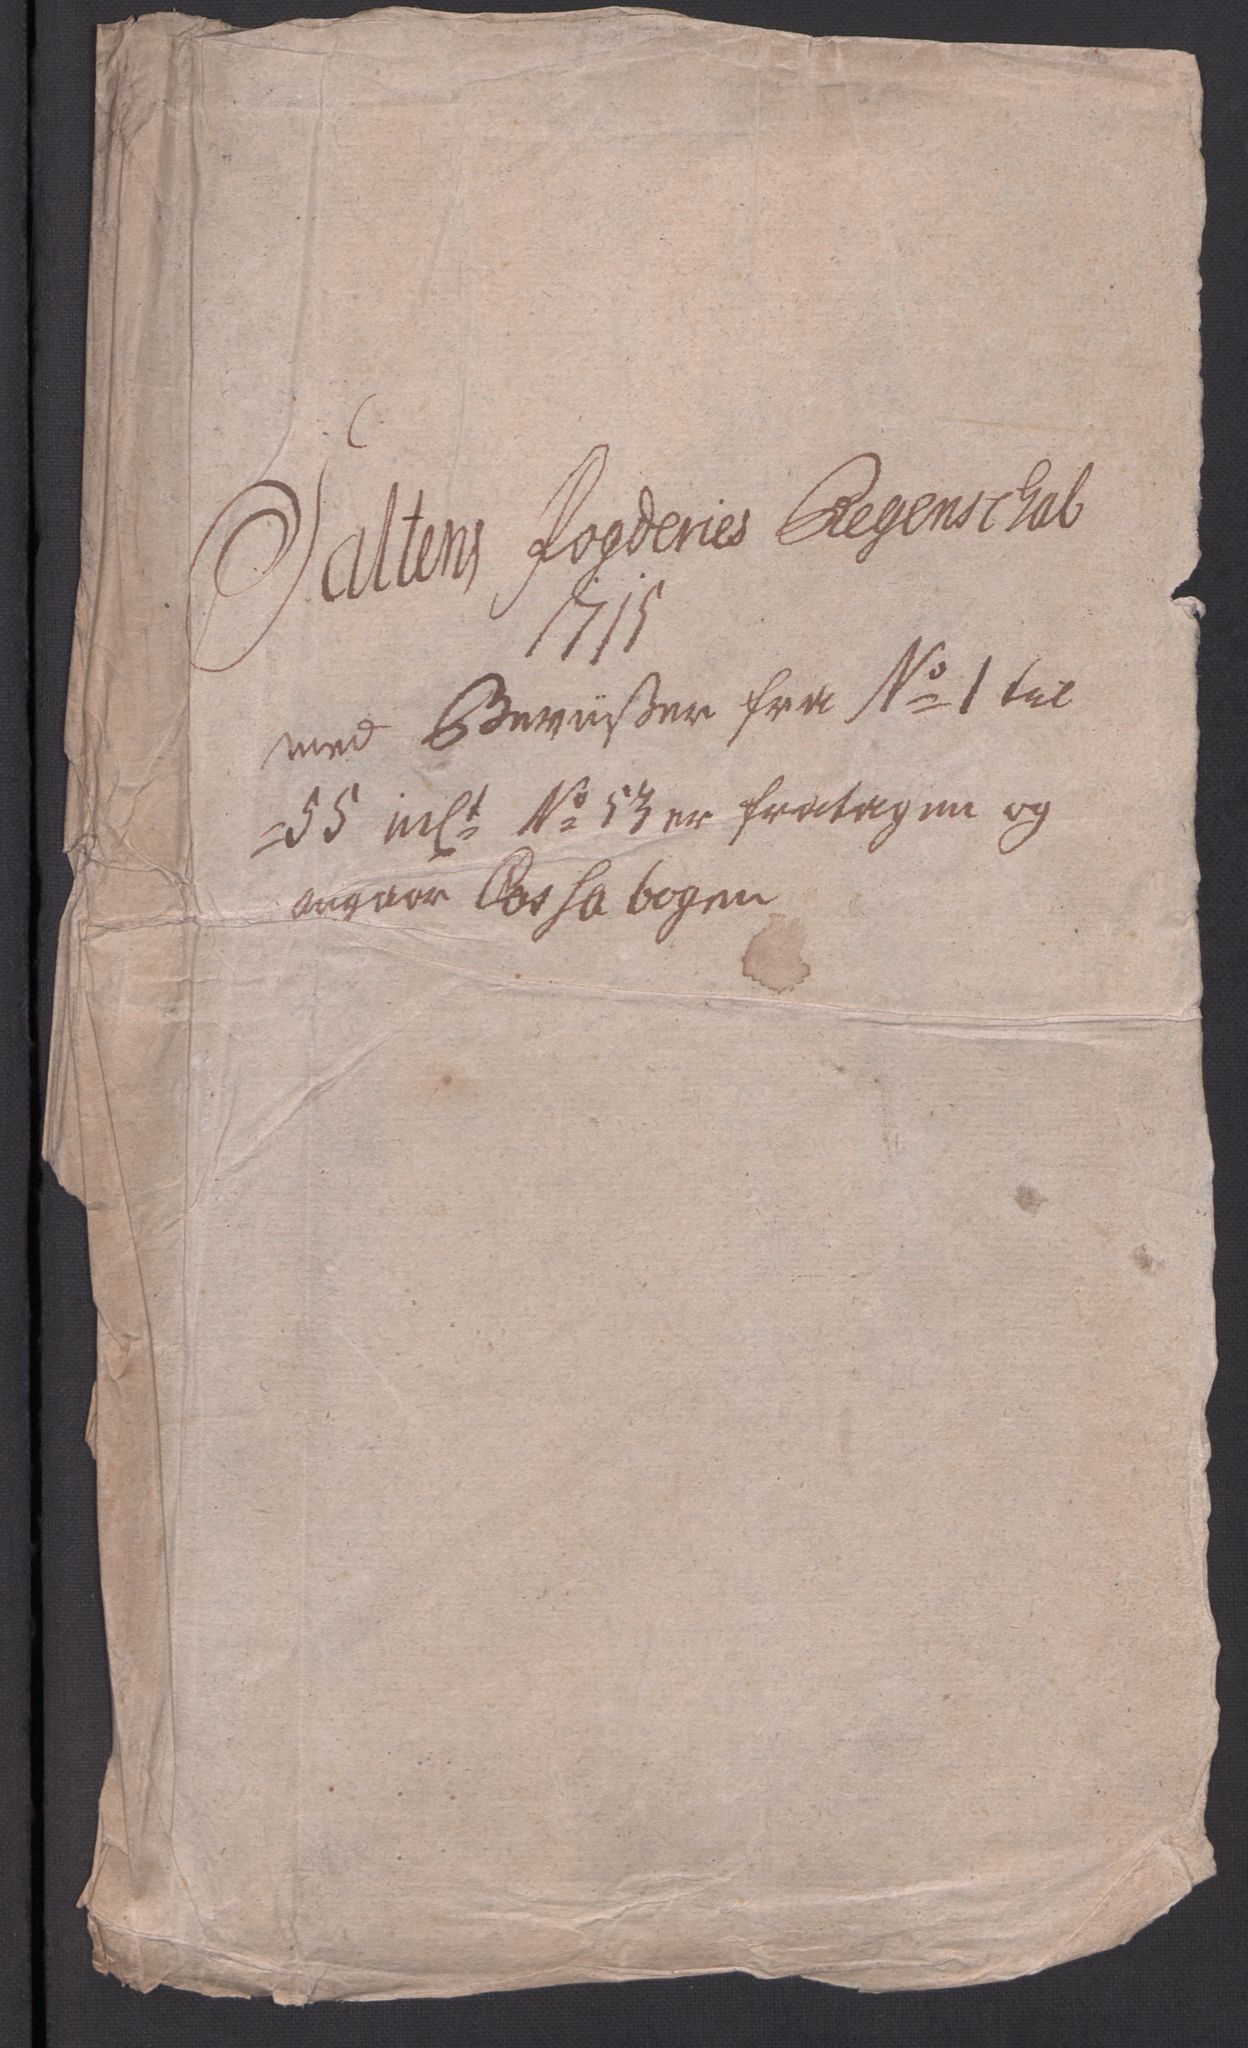 Saltens Fogderies Regenschab
1715
med Beviißer fra No 1 til
55 incl. No 53 er fratagen og
angaar Cassa bogen